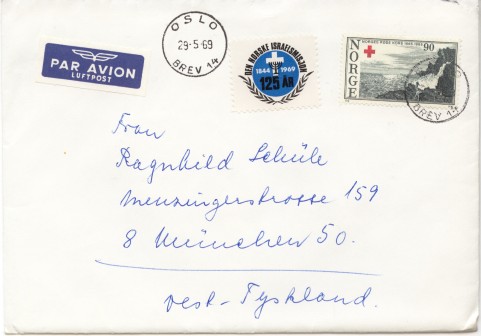 PAR AVION
LUFTPOST
OSLO
29-5-69
BREV 14
DEN NORSKE ISRAELSMISJON
1844 1969
125 ÅR
NORGES RØDE KORS 1865 1965
90
NORGE
BREV 14
Frau
Ragnhild Schüle
Menzingerstrasse 159
8 München 50.
Vest-Tyskland.